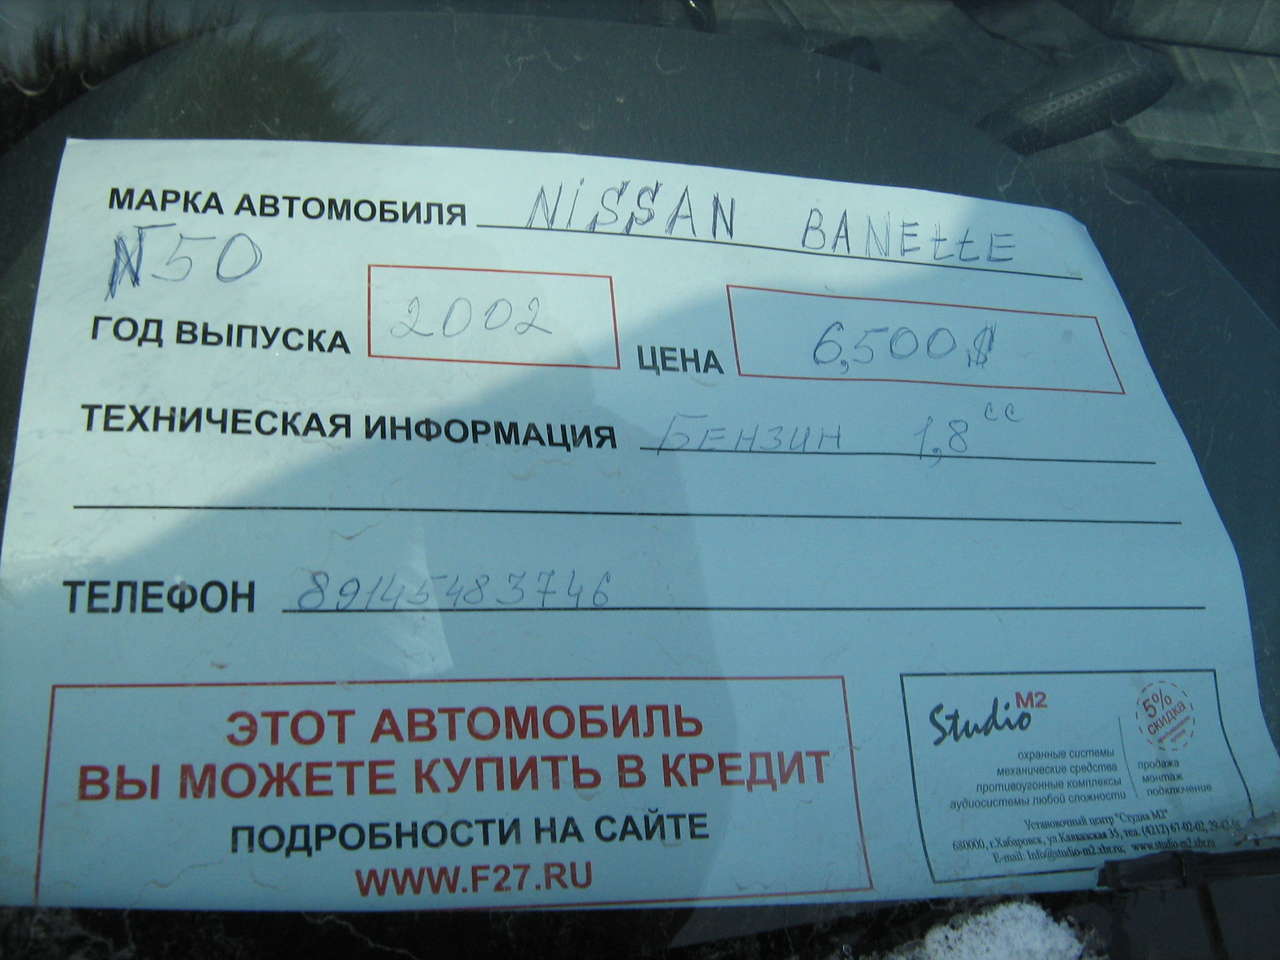 МАРКА АВТОМОБИЛЯ NiSSAN BANEttE
N50
ГОД ВЫПУСКА 2002 ЦЕНА 6,500$
ТЕХНИЧЕСКАЯ ИНФОРМАЦИЯ БЕНЗИН 1,8 cc
ТЕЛЕФОН 89145483746
ЭТОТ АВТОМОБИЛЬ
ВЫ МОЖЕТЕ КУПИТЬ В КРЕДИТ
ПОДРОБНОСТИ НА САЙТЕ
WWW.F27.RU
Studio M2
5%
скидка
охранные системы
механические средства
противоугонные комплексы
аудиосистемы любой сложности
продажа
монтаж
подключение
Установочный центр "Студия М2"
680000, г.Хабаровск, ул.Кавказская 35, тел. (4212) 67-02-02,
E-mail: Info@studio-m2.khv.ru, www.studio-m2.khv.ru